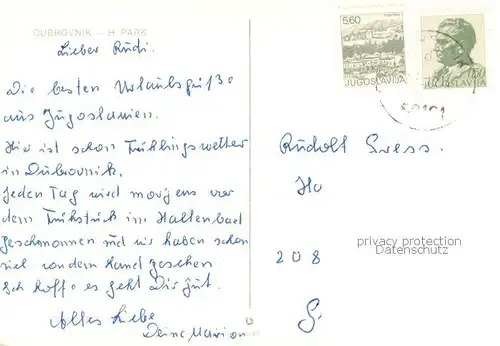 DUBROVNIK — H. PARK
Lieber Rudi.
Die besten Urlaubsgrüße
aus Jugoslawien.
Hier ist schon Frühlingswetter
in Dubrovnik.
Jeden Tag wird morgens vor
dem Frühstück im Hallenbad
geschwommen und wir haben schon
viel von dem Land gesehen.
Ich hoffe es geht Dir gut.
Alles Liebe
Deine Marion
5.60
JUGOSLAVIJA
0.50
JUGOSLAVIJA
Rudolf
Ho
privacy protection
Datenschutz
208
G.